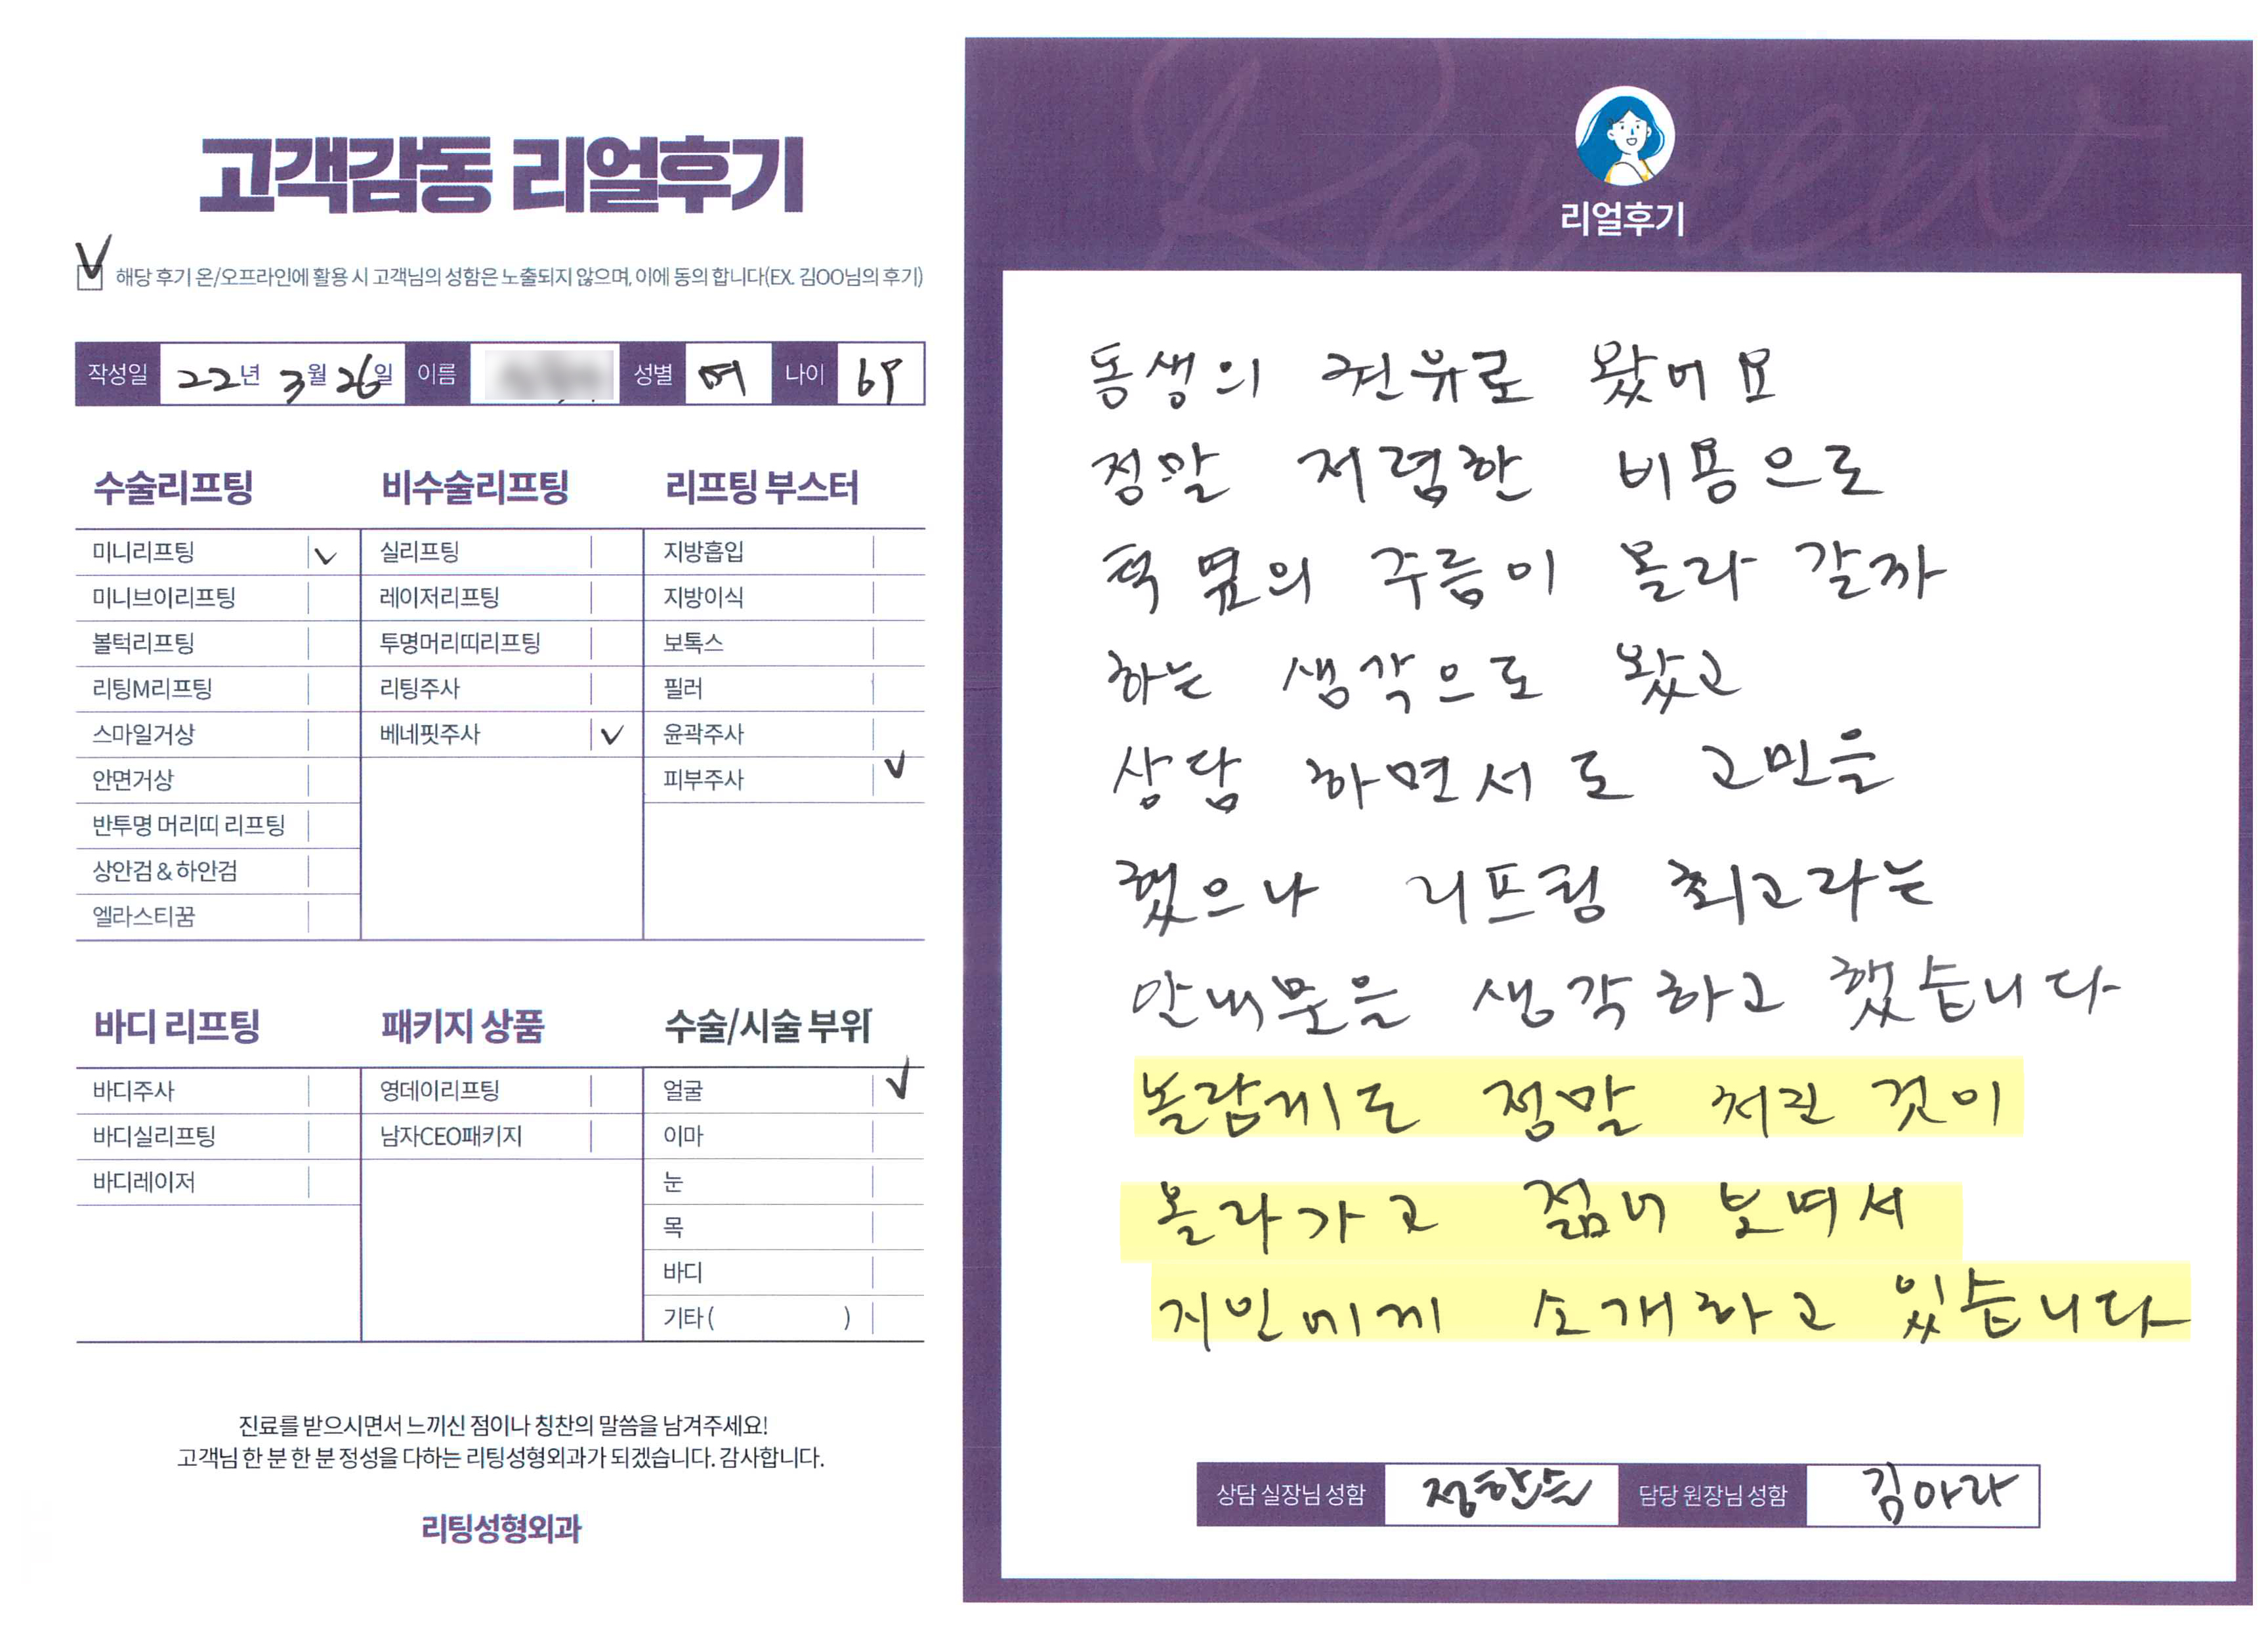 고객감동 리얼후기
해당 후기 온/오프라인에 활용 시 고객님의 성함은 노출되지 않으며, 이에 동의 합니다(EX. 김OO님의 후기)
작성일 22년 3월 26일 이름 성별 여 나이 69
수술리프팅
미니리프팅
미니브이리프팅
볼턱리프팅
리팅M리프팅
스마일거상
안면거상
반투명 머리띠 리프팅
상안검 & 하안검
엘라스티꿈
비수술리프팅
실리프팅
레이저리프팅
투명머리띠리프팅
리팅주사
베네핏주사
리프팅 부스터
지방흡입
지방이식
보톡스
필러
윤곽주사
피부주사
바디 리프팅
바디주사
바디실리프팅
바디레이저
패키지 상품
영데이리프팅
남자CEO패키지
수술/시술 부위
얼굴
이마
눈
목
바디
기타 ( )
진료를 받으시면서 느끼신 점이나 칭찬의 말씀을 남겨주세요!
고객님 한 분 한 분 정성을 다하는 리팅성형외과가 되겠습니다. 감사합니다.
리팅성형외과
Review
리얼후기
동생의 권유로 왔어요
정말 저렴한 비용으로
턱 옆의 주름이 올라 갈까
하는 생각으로 왔고
상담 하면서도 고민을
했으나 리프팅 최고라는
안내문을 생각하고 했습니다
놀랍게도 정말 처진 것이
올라가고 젊어 보여서
지인에게 소개하고 있습니다
상담 실장님 성함 담당 원장님 성함 김아라